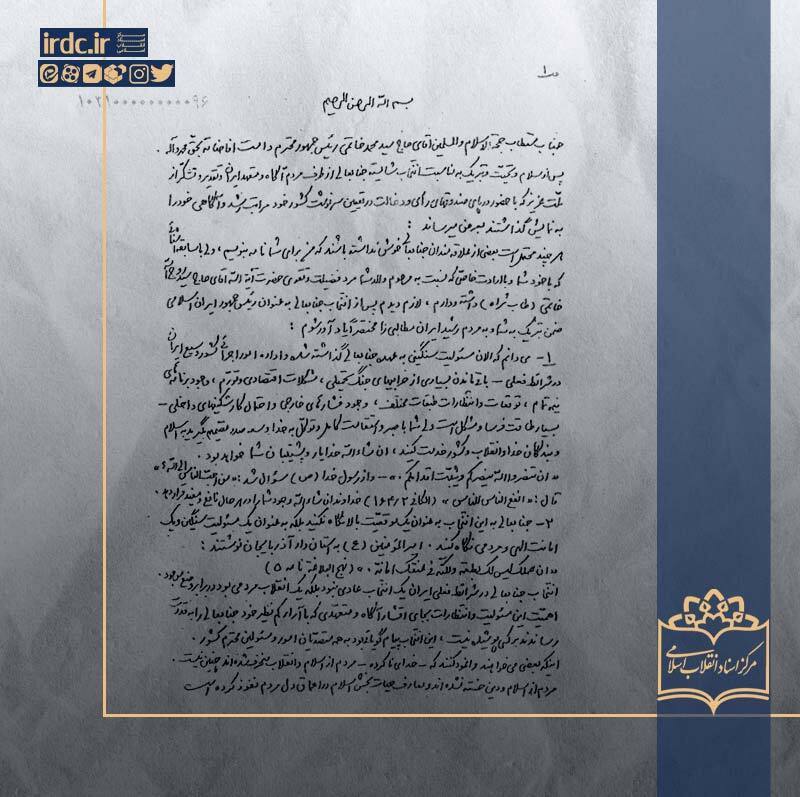 irdc.ir
مرکز
اسناد
انقلاب
اسلامی
ص ۱
۱۰۲۱۰۰۰۰۰۰۰۰۰۰۹۶
بسم الله الرحمن الرحیم
جناب مستطاب حجة الاسلام والمسلمین آقای حاج سید محمد خاتمی رئیس جمهور محترم دامت افاضاته بحق محمد وآله
پس از سلام و تحیت و تبریک به مناسبت انتخاب شایسته جنابعالی از طرف مردم آگاه و متعهد ایران و تقدیر و تشکر از
ملت عزیز که با حضور در پای صندوقهای رأی و دخالت در تعیین سرنوشت کشور خود مراتب رشد و آگاهی خود را
به نمایش گذاشتند بعرض میرساند :
هر چند محتمل است بعضی از علاقه مندان جنابعالی خوش نداشته باشند که من برای شما نامه بنویسم ، ولی با سابقه آشنائی
که با خود شما و با ارادت خاصی که نسبت به مرحوم والد شما مرد فضیلت و تقوی حضرت آیة الله آقای حاج سید روح الله
خاتمی (طاب ثراه) داشته و دارم ، لازم دیدم پس از انتخاب جنابعالی به عنوان رئیس جمهور ایران اسلامی
ضمن تبریک به شما و به مردم رشید ایران مطالبی را مختصراً یادآور شوم :
۱- می دانم که الان مسئولیت سنگینی به عهده جنابعالی گذاشته شده و اداره امور اجرائی کشور وسیع ایران
در شرائط فعلی – باقی ماندن بسیاری از خرابیهای جنگ تحمیلی ، مشکلات اقتصادی و تورم ، وجود برنامه های
نیمه تمام ، توقعات و انتظارات طبقات مختلف ، وجود فشارهای خارجی و احتمال کارشکنیهای داخلی –
بسیار طاقت فرسا و مشکل است ولی شما با صبر و استقامت کامل و توکل به خدا و سعه صدر تصمیم بگیرید به اسلام
و بندگان خدا و انقلاب و کشور خدمت کنید ، ان شاء الله خدا یار و پشتیبان شما خواهد بود .
« ان تنصروا الله ینصرکم ویثبت اقدامکم » – و از رسول خدا (ص) سؤال شد : « من احب الناس الی الله ؟ »
قال : « انفع الناس للناس » (الکافی ۲/۱۶۴) خداوند ان شاء الله وجود شما را در هر حال نافع و مفید قرار دهد .
۲- جنابعالی به این انتخاب به عنوان یک موقعیت بالا نگاه نکنید بلکه به عنوان یک مسئولیت سنگین و یک
امانت الهی و مردمی نگاه کنید . امیر المؤمنین (ع) به استاندار آذربایجان نوشتند :
« ان عملک لیس لک بطعمة ولکنه فی عنقک امانة . » (نهج البلاغة نامه ۵)
انتخاب جنابعالی در شرائط فعلی ایران یک انتخاب عادی نبود بلکه یک انقلاب مردمی بود در برابر وضع موجود .
اهمیت این مسئولیت و انتظارات بجای اقشار آگاه و متعهدی که با آراء کم نظیر خود جنابعالی را به قدرت
رساندند بر کسی پوشیده نیست ، این انتخاب پیام گویائی بود به همه متصدیان امور و مسئولین محترم کشور .
اینکه بعضی می خواهند وانمود کنند که – خدای نا کرده – مردم از اسلام و انقلاب منحرف شده اند چنین نیست .
مردم از اسلام و دین خسته نشده اند و معارف حیات بخش اسلام در اعماق دل مردم نفوذ کرده است
مرکز اسناد انقلاب اسلامی